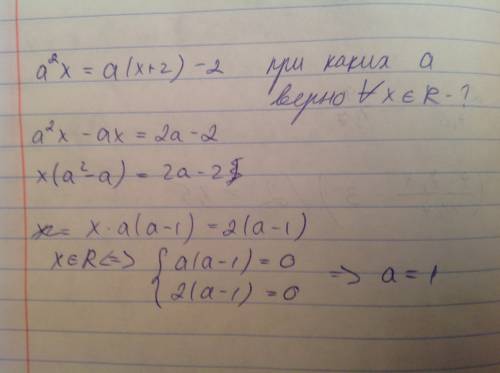 a²x = a(x+2) - 2 при каких a
верно ∀ x ∈ R - ?
a²x - ax = 2a - 2
x(a² - a) = 2a - 2
x · a(a-1) = 2(a-1)
x ∈ R <=> { a(a-1) = 0
2(a-1) = 0 => a = 1